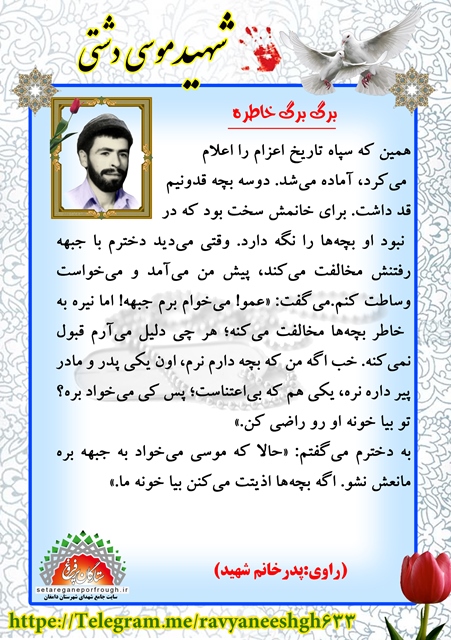 شهید موسی دشتی
برگ برگ خاطره
همین که سپاه تاریخ اعزام را اعلام
می‌کرد، آماده می‌شد. دوسه بچه قدونیم
قد داشت. برای خانمش سخت بود که در
نبود او بچه‌ها را نگه دارد. وقتی می‌دید دخترم با جبهه
رفتنش مخالفت می‌کند، پیش من می‌آمد و می‌خواست
وساطت کنم.می‌گفت: «عمو! می‌خوام برم جبهه! اما نیره به
خاطر بچه‌ها مخالفت می‌کنه؛ هر چی دلیل می‌آرم قبول
نمی‌کنه. خب اگه من که بچه دارم نرم، اون یکی پدر و مادر
پیر داره نره، یکی هم که بی‌اعتناست؛ پس کی می‌خواد بره؟
تو بیا خونه او رو راضی کن.»
به دخترم می‌گفتم: «حالا که موسی می‌خواد به جبهه بره
مانعش نشو. اگه بچه‌ها اذیتت می‌کنن بیا خونه ما.»
(راوی:پدرخانم شهید)
ستارگان پرفروغ
setareganeporfrough.ir
سایت جامع شهدای شهرستان دامغان
https://Telegram.me/ravyaneeshgh633